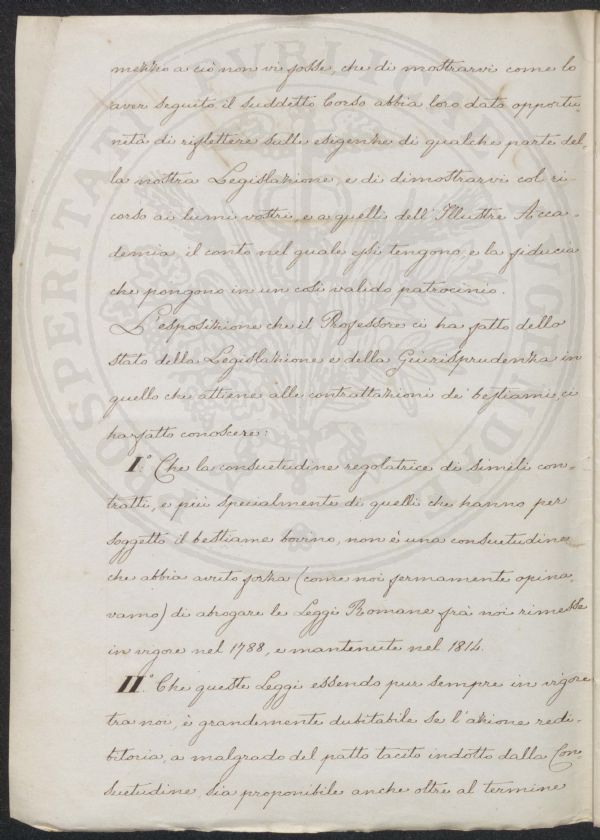 mezzo a ciò non vi fosse, che di mostrarvi come lo
aver seguito il suddetto Corso abbia loro dato opportu-
nità di riflettere sulle esigenze di qualche parte del-
la nostra Legislazione, e di dimostrarvi col ri-
corso ai lumi vostri, e a quelli dell'Illustre Acca-
demia, il conto nel quale essi tengono, e la fiducia
che pongono in un così valido patrocinio.
L'esposizione che il Professore ci ha fatto dello
stato della Legislazione e della Giurisprudenza in
quello che attiene alle contrattazioni de' bestiami, ci
ha fatto conoscere:
I.° Che la consuetudine regolatrice di simili con-
tratti, e più specialmente di quelli che hanno per
soggetto il bestiame bovino, non è una consuetudine
che abbia avuto forza (come noi fermamente opina-
vamo) di abrogare le Leggi Romane frà noi rimesse
in vigore nel 1788, e mantenute nel 1814.
II.° Che queste Leggi essendo pur sempre in vigore
tra noi, è grandemente dubitabile se l'azione redi-
bitoria, a malgrado del patto tacito indotto dalla Con-
suetudine, sia proponibile anche oltre al termine
PROSPERITATI PVBLICAE AVGENDAE